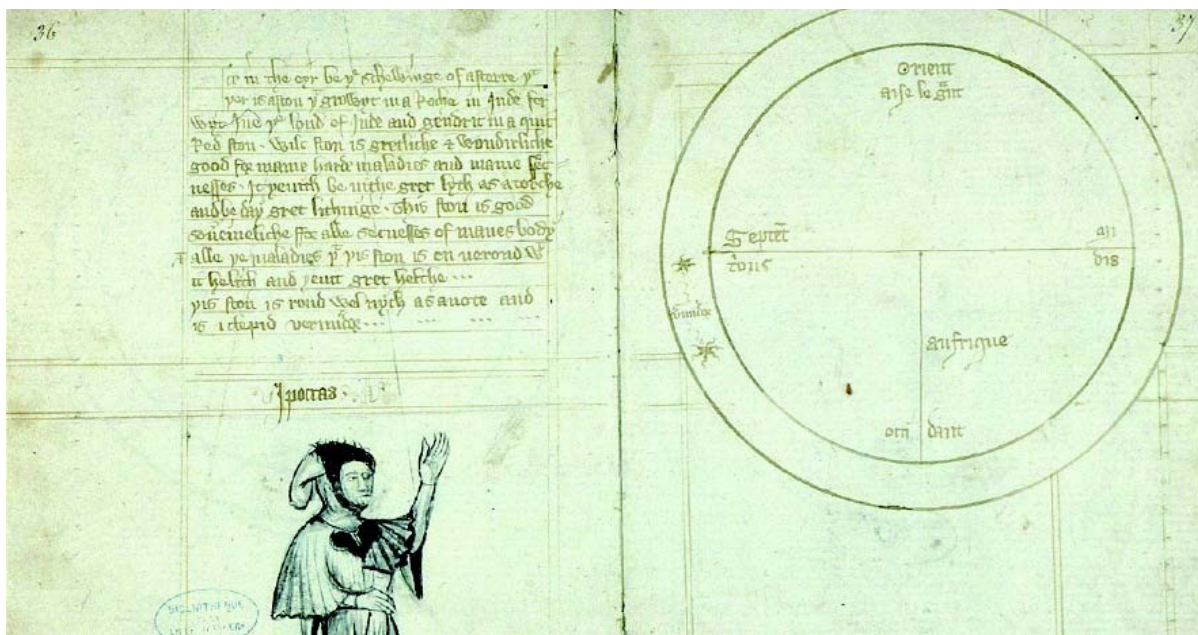 36
in the eyr be yͤ schewinge of a sterre yͭ
yer is a ston yͭ growyt in a Roche in Inde fer
wyt Inne yͤ lond of Inde and gendrit in a quit
Red ston. wilc ston is gretliche & wondirliche
good for manie harde maladies and manie sec
nesses. It yevith be nithe gret lych as a torche
and be day gret lichinge. This ston is good
souerneliche for alle secnesses of manes body
alle ye maladies yͭ yis ston is on
it helith and yeuit gret helthe ...
yis ston is rond wel nych as a note and
is icleped
Ipocras.
BIBLIOTHEQUE
37
Orient
aise le gnt
Septet
trons
an
dis
aufrique
occi dant